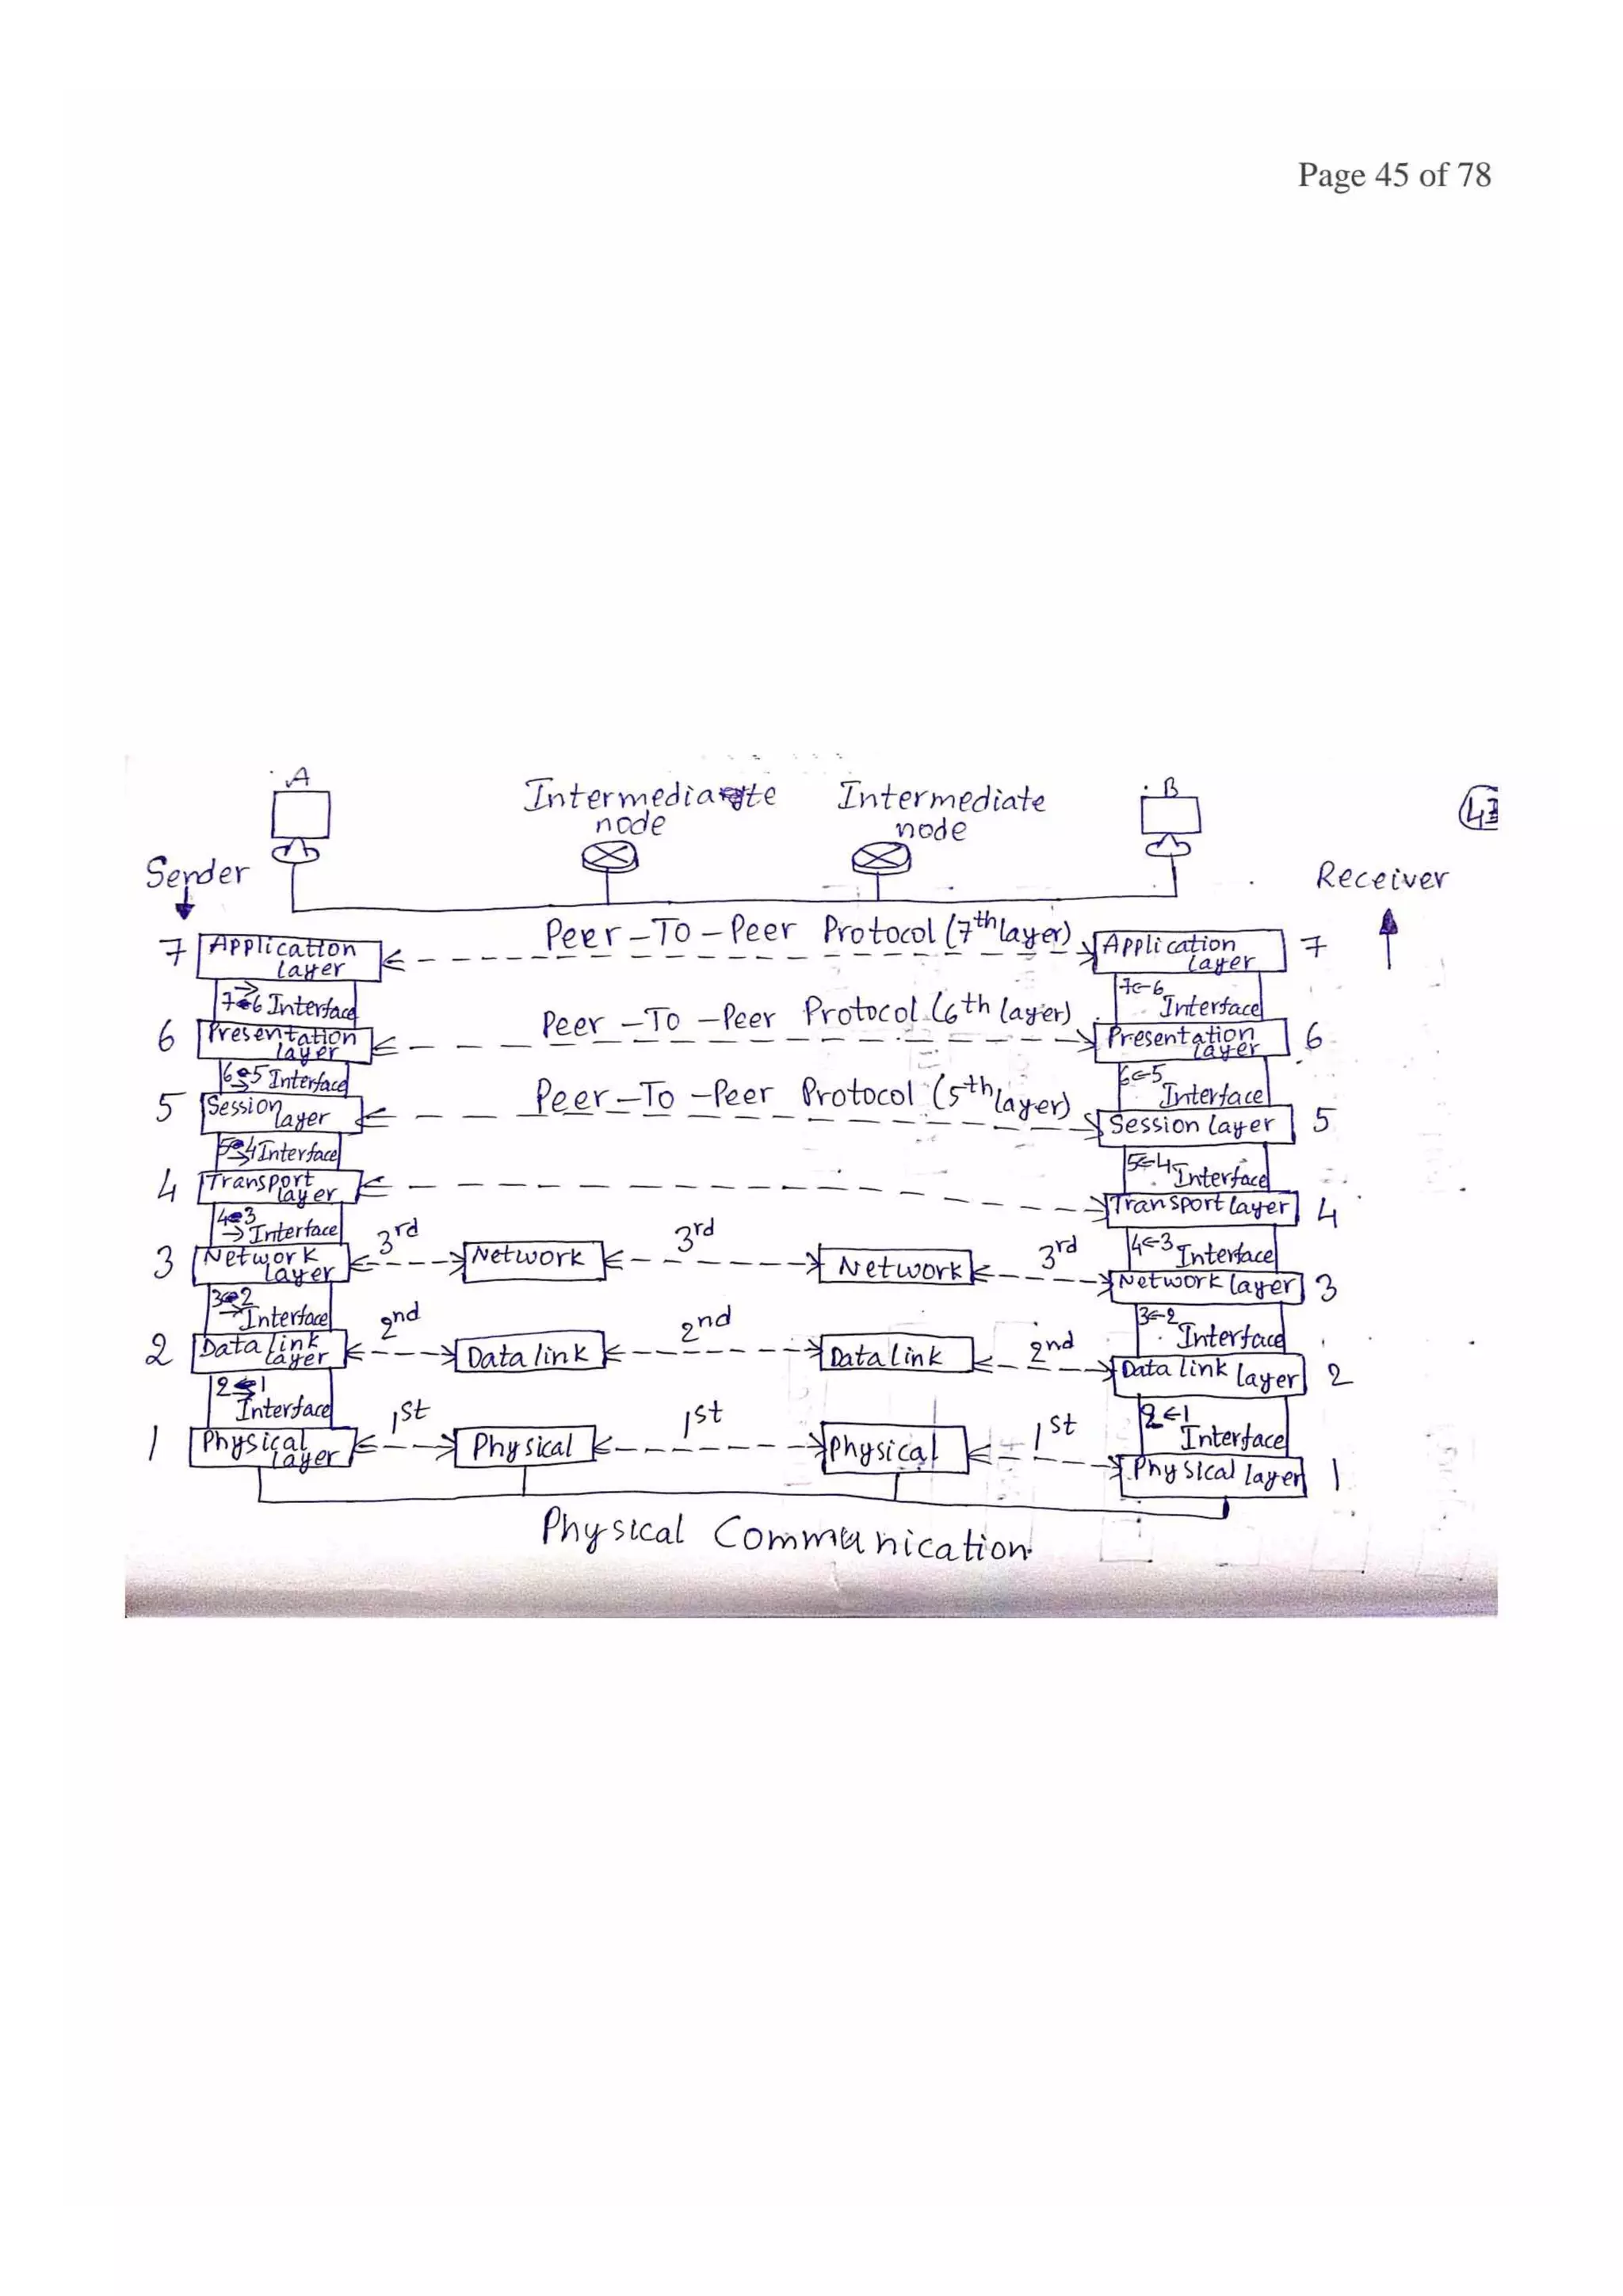 Page 45 of 78
A
Intermediate
node
Intermediate
node
B
Sender
Receiver
Peer-To-Peer Protocol (7th layer)
7 Application
layer
Application
layer 7
7 6 Interface
7←6
Interface
Peer-To-Peer Protocol (6th layer)
6 Presentation
layer
Presentation
layer 6
6 5 Interface
6←5
Interface
Peer-To-Peer Protocol (5th layer)
5 Session
layer
Session layer 5
5 4 Interface
5←4 Interface
4 Transport
layer
Transport layer 4
4 3
→ Interface
4←3 Interface
3 Network
layer
3rd
Network
3rd
Network
3rd
Network layer 3
3 2
→ Interface
3←2
Interface
2 Data link
layer
2nd
Data link
2nd
Data link
2nd
Data link layer 2
2 1
Interface
2←1
Interface
1 Physical
layer
1st
Physical
1st
Physical
1st
Physical layer 1
Physical Communication